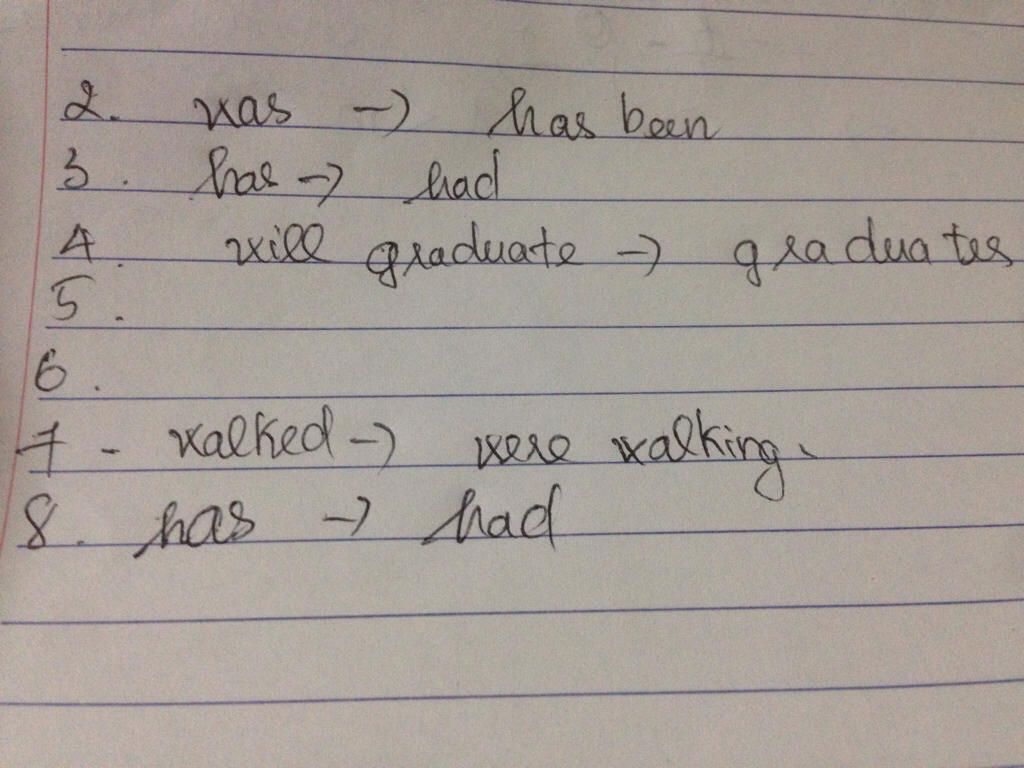 2. was → has been
3. has → had
4. will graduate → graduates
5.
6.
7 - walked → were walking.
8. has → had